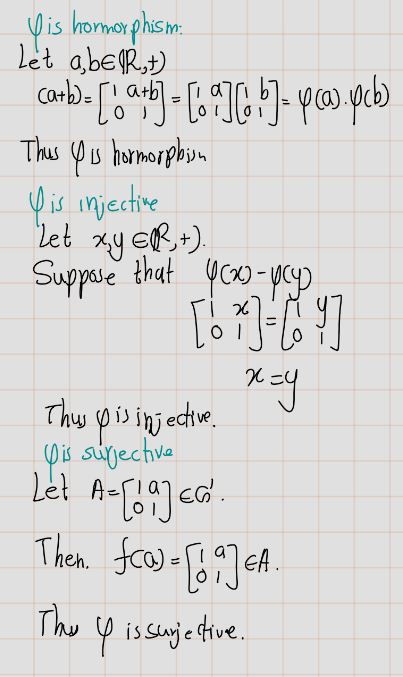 φ is hormorphism:
Let a,b∈(R,+)
(a+b)=[1 a+b; 0 1]=[1 a; 0 1][1 b; 0 1]=φ(a).φ(b)
Thus φ is hormorphism
φ is injective
Let x,y∈(R,+).
Suppose that φ(x)-φ(y)
[1 x; 0 1]=[1 y; 0 1]
x=y
Thus φ is injective.
φ is surjective
Let A=[1 a; 0 1]∈G'.
Then. f(a)=[1 a; 0 1]∈A.
Thus φ is surjective.